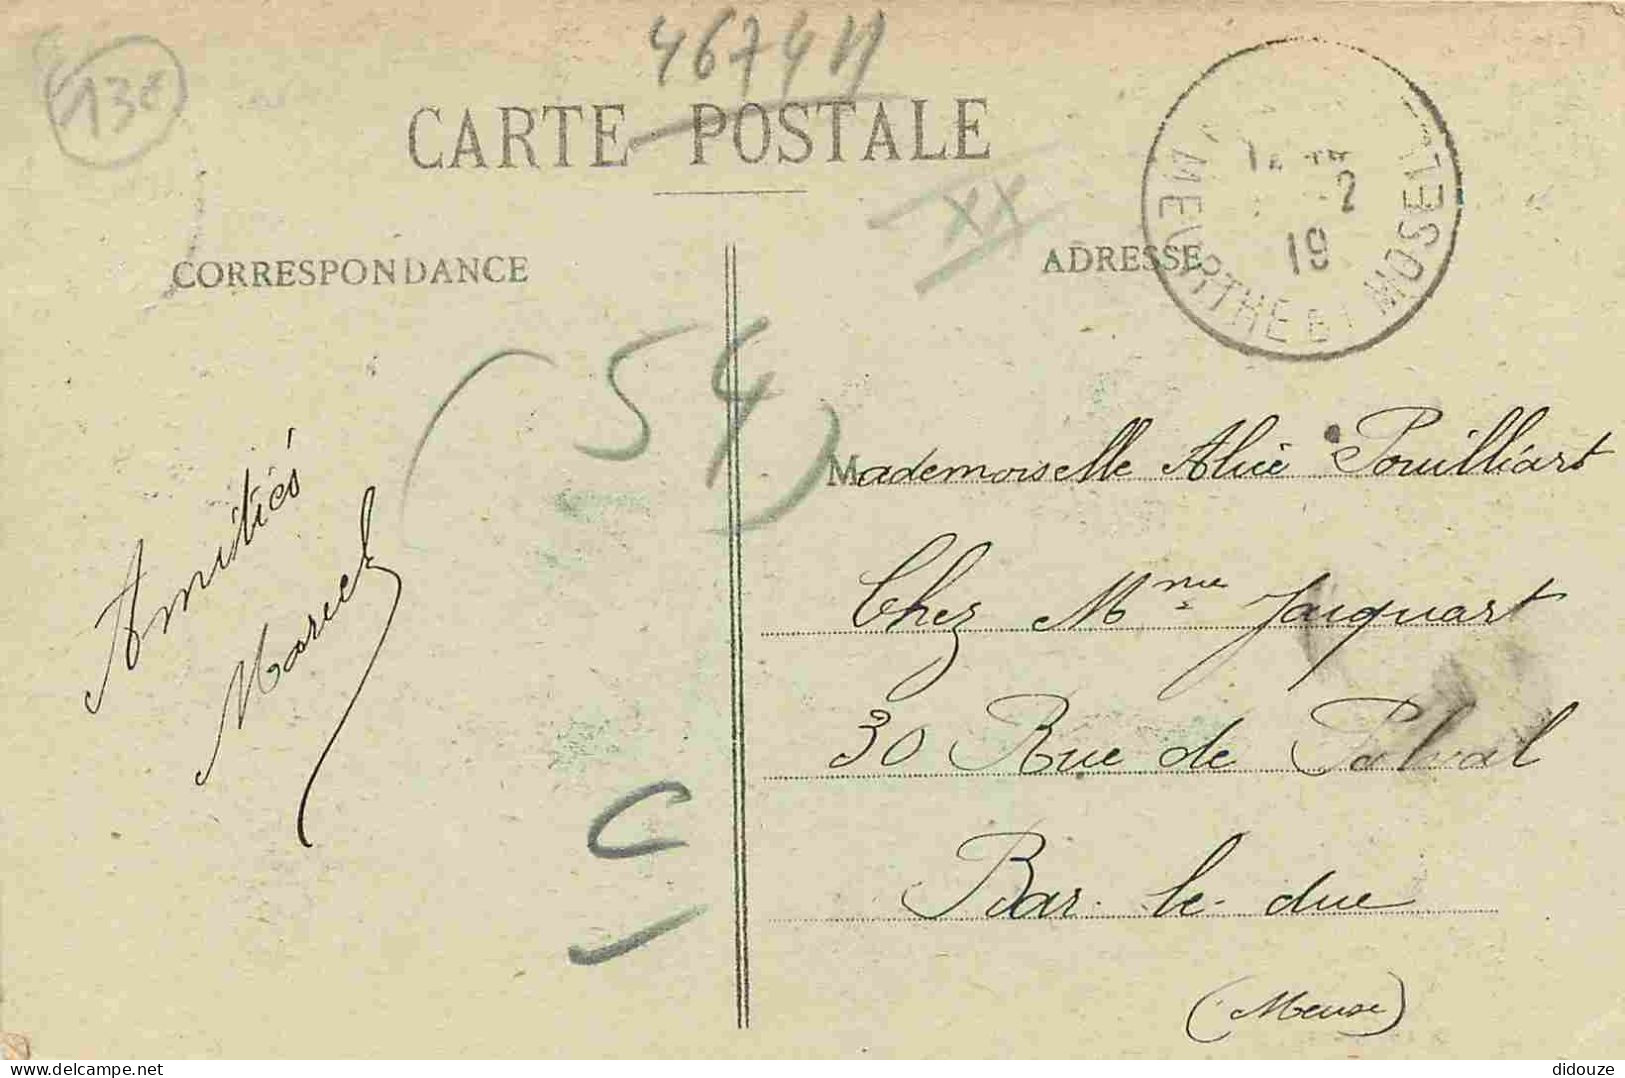 13€
4674N
CARTE POSTALE
XX
CORRESPONDANCE
ADRESSE
MEURTHE ET MOSELLE
-2
19
(54)
Amitiés
Mademoiselle Alice Pouilliart
Chez Mme Jacquart
30 Rue de
Bar-le-duc
(Meuse)
C
delcampe.net
didouze